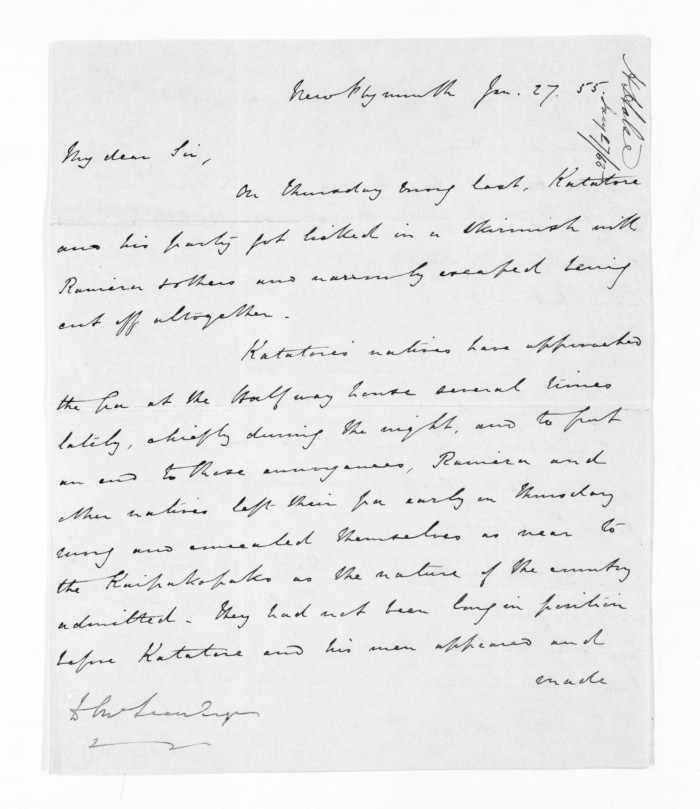 New Plymouth Jan. 27. 55.
H Halse
Jany 27/55
My dear Sir,
On Thursday mng last, Katatore
and his party got licked in a skirmish with
Ramira & others and narrowly escaped being
cut off altogether.
Katatore's natives have approached
the pa at the Halfway house several times
lately, chiefly during the night, and to put
an end to those annoyances, Ramira and
other natives left their pa early on Thursday
mng and concealed themselves as near to
the Kaipakopako as the nature of the country
admitted. They had not been long in position
before Katatore and his men appeared and
made
D McLean Esqr